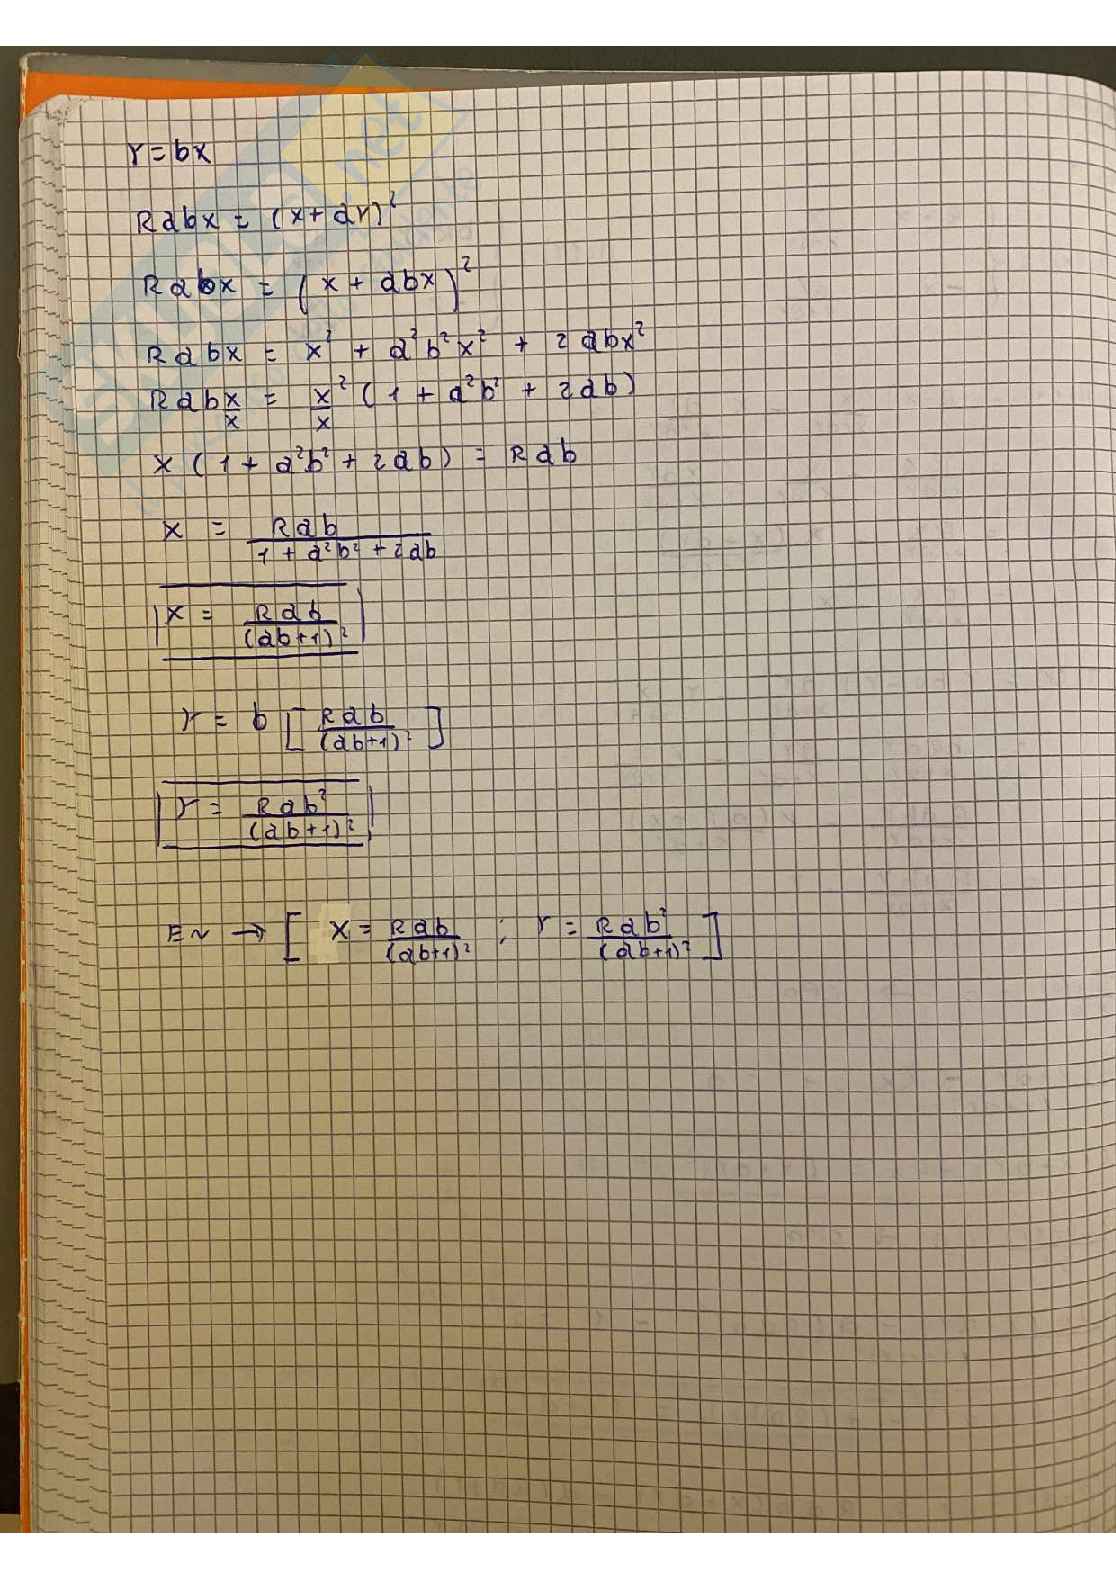 Y = bx
Rabx = (x + aY)²
Rabx = (x + abx)²
Rabx = x² + a²b²x² + 2abx²
Rab x/x = x²/x (1 + a²b² + 2ab)
x (1 + a²b² + 2ab) = Rab
x = Rab / (1 + a²b² + 2ab)
x = Rab / (ab+1)²
Y = b [ Rab / (ab+1)² ]
Y = Rab² / (ab+1)²
EN → [ X = Rab / (ab+1)² ; Y = Rab² / (ab+1)² ]